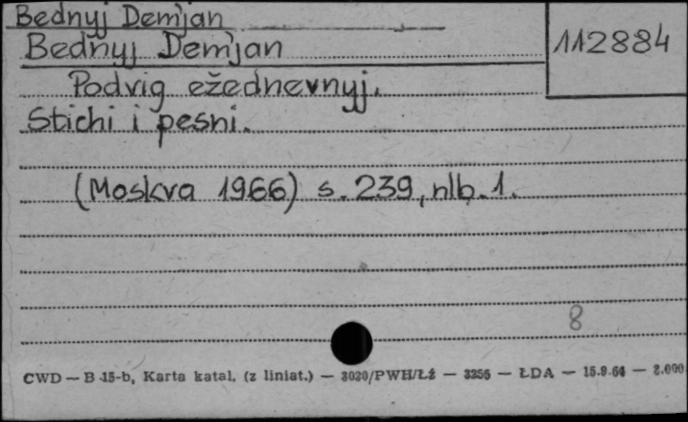 Bednyj Dem'jan
112884
Bednyj Dem'jan
Podvig ežednevnyj.
Stichi i pesni.
(Moskva 1966) s. 239, nlb. 1.
8
CWD — B-15-b, Karta katal. (z liniat.) — 3020/PWH/Łź — 3256 — ŁDA — 15.9.64 — 2.000